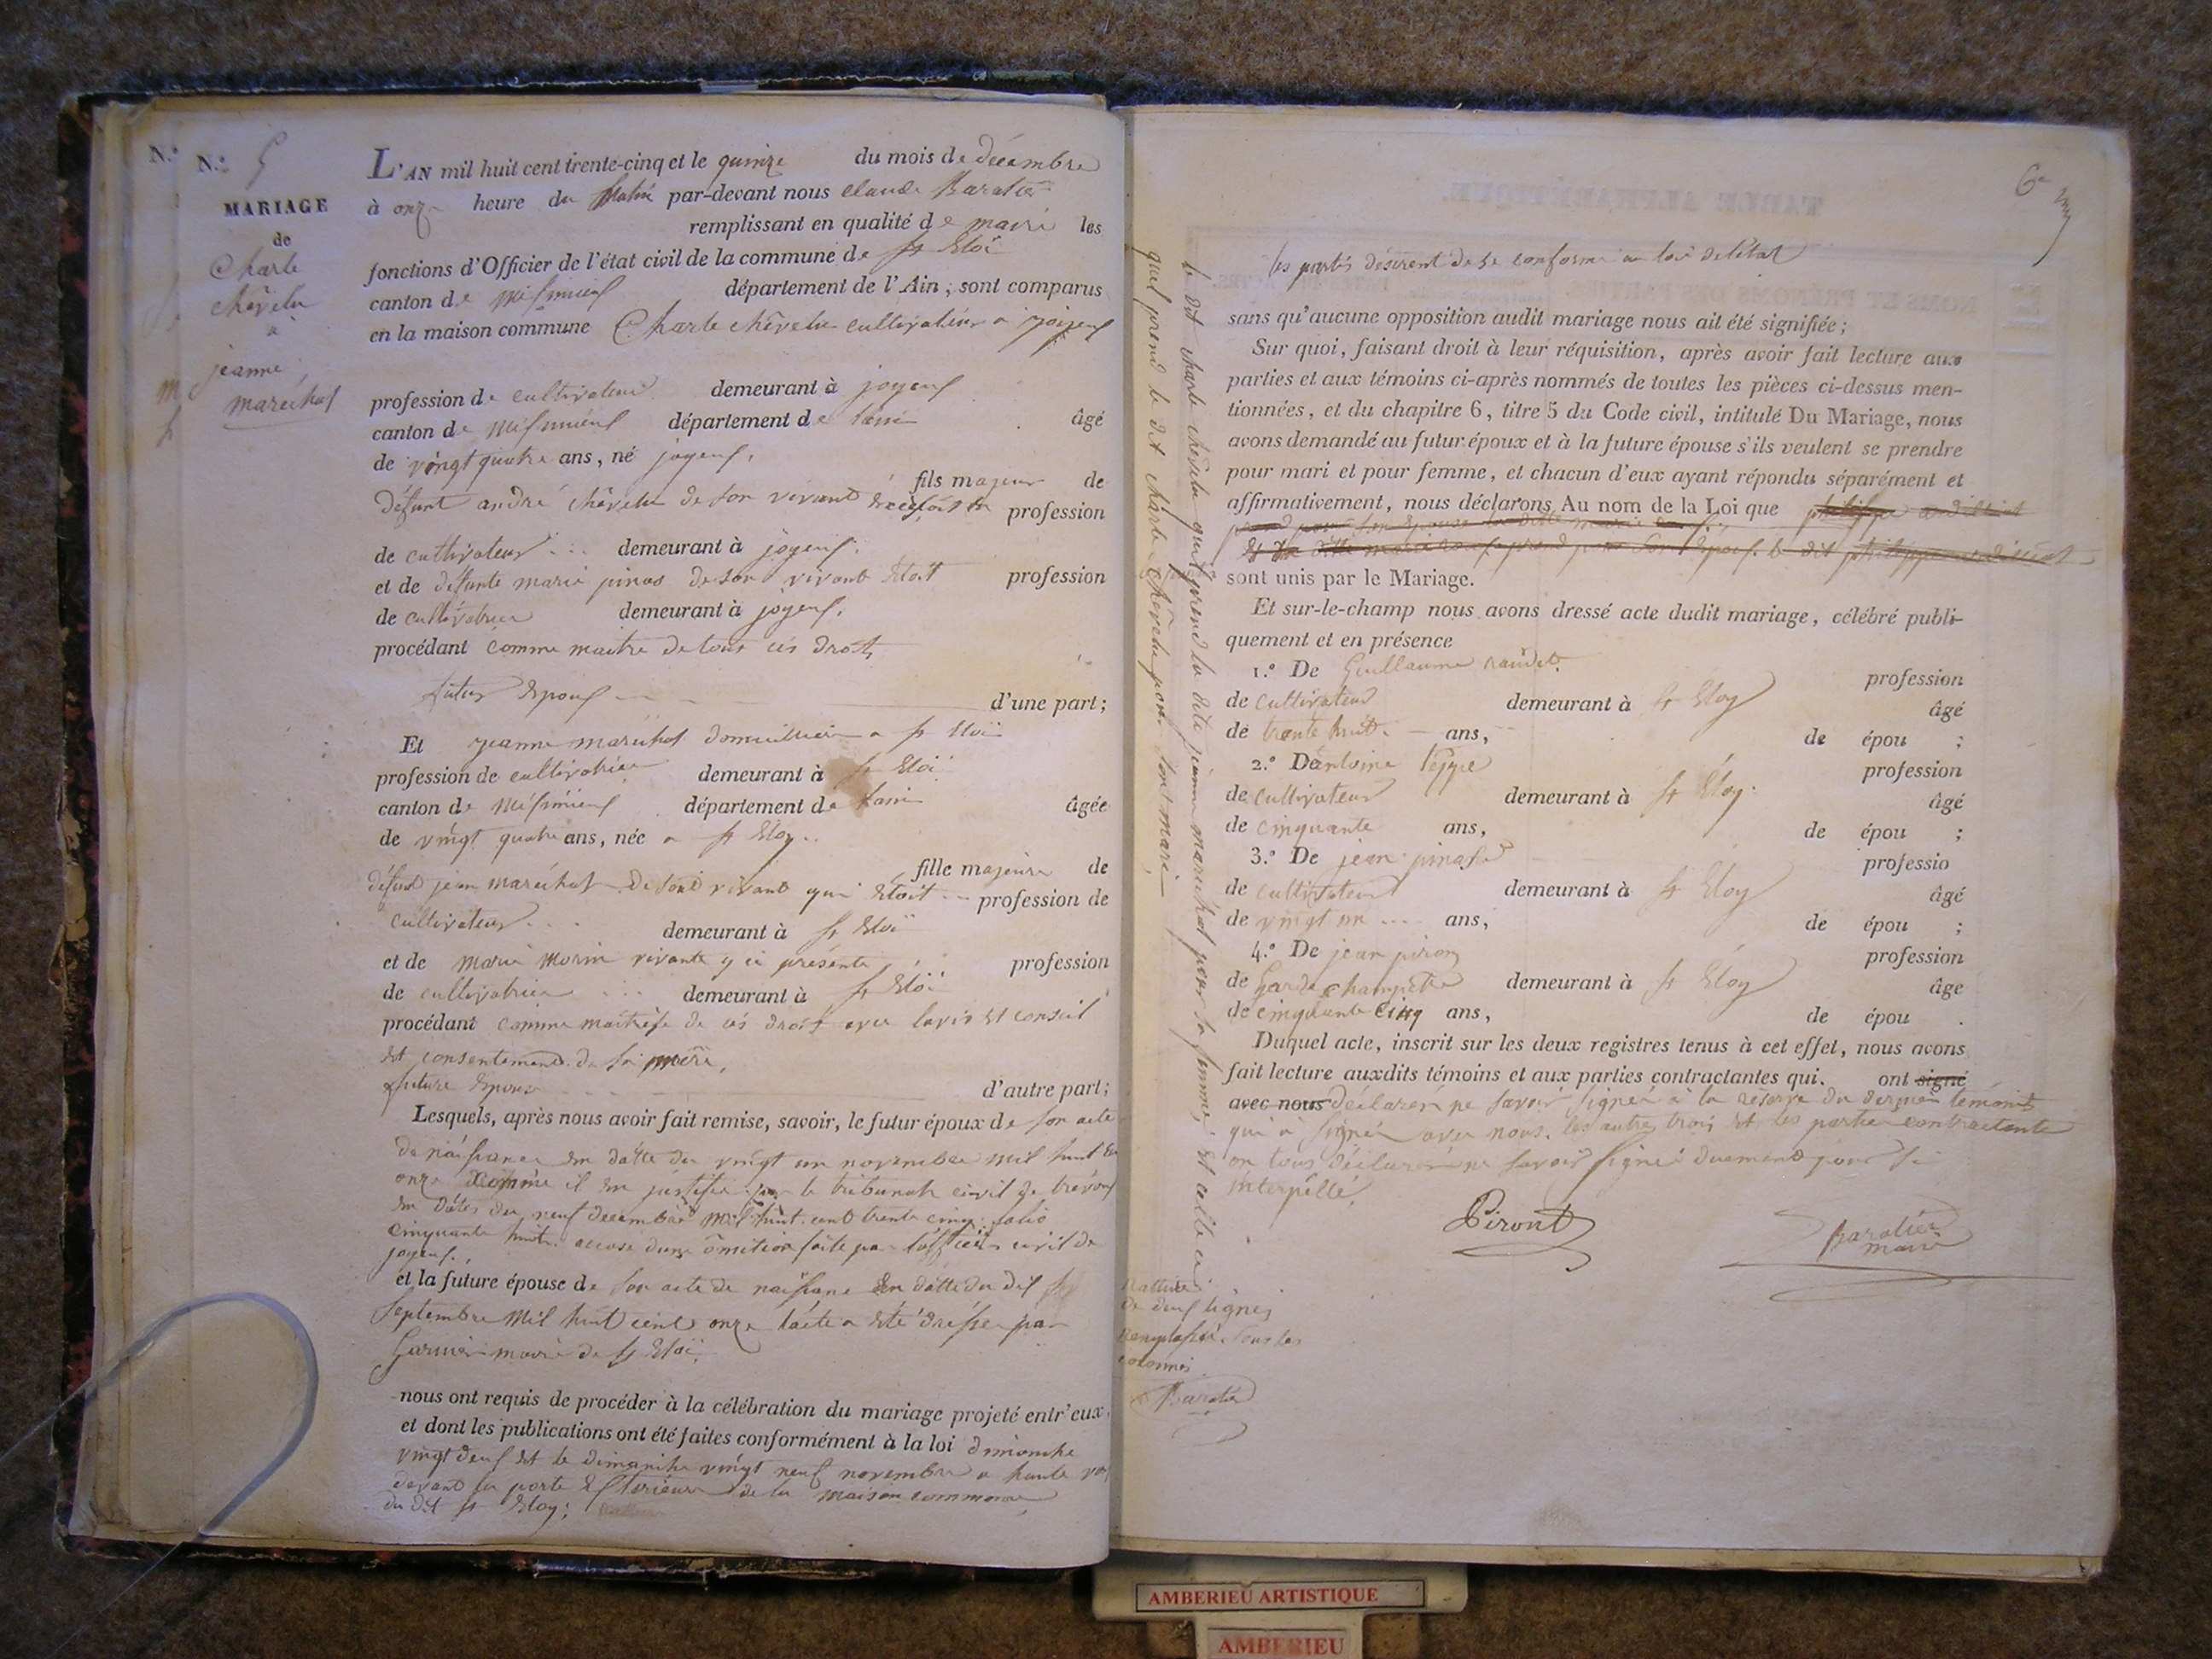 N.º
N.º 5
MARIAGE
de
Charle
chêvelu
a
jeanne
maréchal
L'AN mil huit cent trente-cinq et le quinze du mois de décembre
à onze heure du matin par-devant nous claude Baratier
remplissant en qualité de maire les
fonctions d'Officier de l'état civil de la commune de St Eloi
canton de département de l'Ain, sont comparus
en la maison commune Charle chêvelu cultivateur a
profession de cultivateur demeurant à joyeux
canton de département de
âgé
de vingt quatre ans, né joyeux,
fils majeur de
défunt andré chêvelu de son vivant profession
de cultivateur demeurant à joyeux
et de défunte marie de son vivant Etoit profession
de cultivatrice demeurant à joyeux,
procédant comme maitre de tous ces droits
futur Epoux d'une part;
Et jeanne maréchal a St Eloi
profession de cultivatrice demeurant à St Eloi
canton de département de
âgée
de vingt quatre ans, née a St Eloy
fille majeure de
défunt jean maréchal de son vivant qui Etoit profession de
cultivateur demeurant à St Eloi
et de marie morin vivante y ci présente profession
de cultivatrice demeurant à St Eloi
procédant comme maitresse de ces droit avec lavis Et conseil
Et consentement de sa mère,
future Epouse d'autre part;
Lesquels, après nous avoir fait remise, savoir, le futur époux de son acte
de naissance En datte du vingt un novembre mil huit
onze comme il En justifie par le tribunal civil de
En date du neuf decembre mil huit cent trente cinq
cinquante huit faite par civil de
joyeux.
et la future épouse de son acte de naissance En datte du dix
Septembre mil huit cent onze lacte a Eté par
Garnier maire de St Eloi,
nous ont requis de procéder à la célébration du mariage projeté entr'eux,
et dont les publications ont été faites conformément à la loi dimanche
vingt deux Et le dimanche vingt neuf novembre a haute
devant la porte de la maison commune
du dit St Eloy;
6e
les partis désirent de se conforme
sans qu'aucune opposition audit mariage nous ait été signifiée;
Sur quoi, faisant droit à leur réquisition, après avoir fait lecture aux
parties et aux témoins ci-après nommés de toutes les pièces ci-dessus men-
tionnées, et du chapitre 6, titre 5 du Code civil, intitulé Du Mariage, nous
avons demandé au futur époux et à la future épouse s'ils veulent se prendre
pour mari et pour femme, et chacun d'eux ayant répondu séparément et
affirmativement, nous déclarons Au nom de la Loi que
sont unis par le Mariage.
Et sur-le-champ nous avons dressé acte dudit mariage, célébré publi-
quement et en présence
1.º De Guillaume profession
de cultivateur demeurant à St Eloy
âgé
de trente huit ans, de épou ;
2.º Dantoine profession
de cultivateur demeurant à St Eloy
âgé
de cinquante ans, de épou ;
3.º De jean professio
de cultivateur demeurant à St Eloy
âgé
de vingt un ans, de épou ;
4.º De jean piron profession
de Garde champêtre demeurant à St Eloy
âge
de cinquante cinq ans, de épou .
Duquel acte, inscrit sur les deux registres tenus à cet effet, nous avons
fait lecture auxdits témoins et aux parties contractantes qui. ont signé
avec nous déclarer ne savoir signer à la réserve du dernier témoins
qui a signé avec nous. les autres trois Et les partie contractante
on tous déclarer ne savoir signer
interpellé.
Piront
Baratier
maire
le dit charle chêvelu qu'il prend la dite jeanne maréchal pour sa femme, Et celle ci
quel prend le dit charle chêvelu pour son mari
de deux lignes
Baratier
AMBERIEU ARTISTIQUE
AMBERIEU